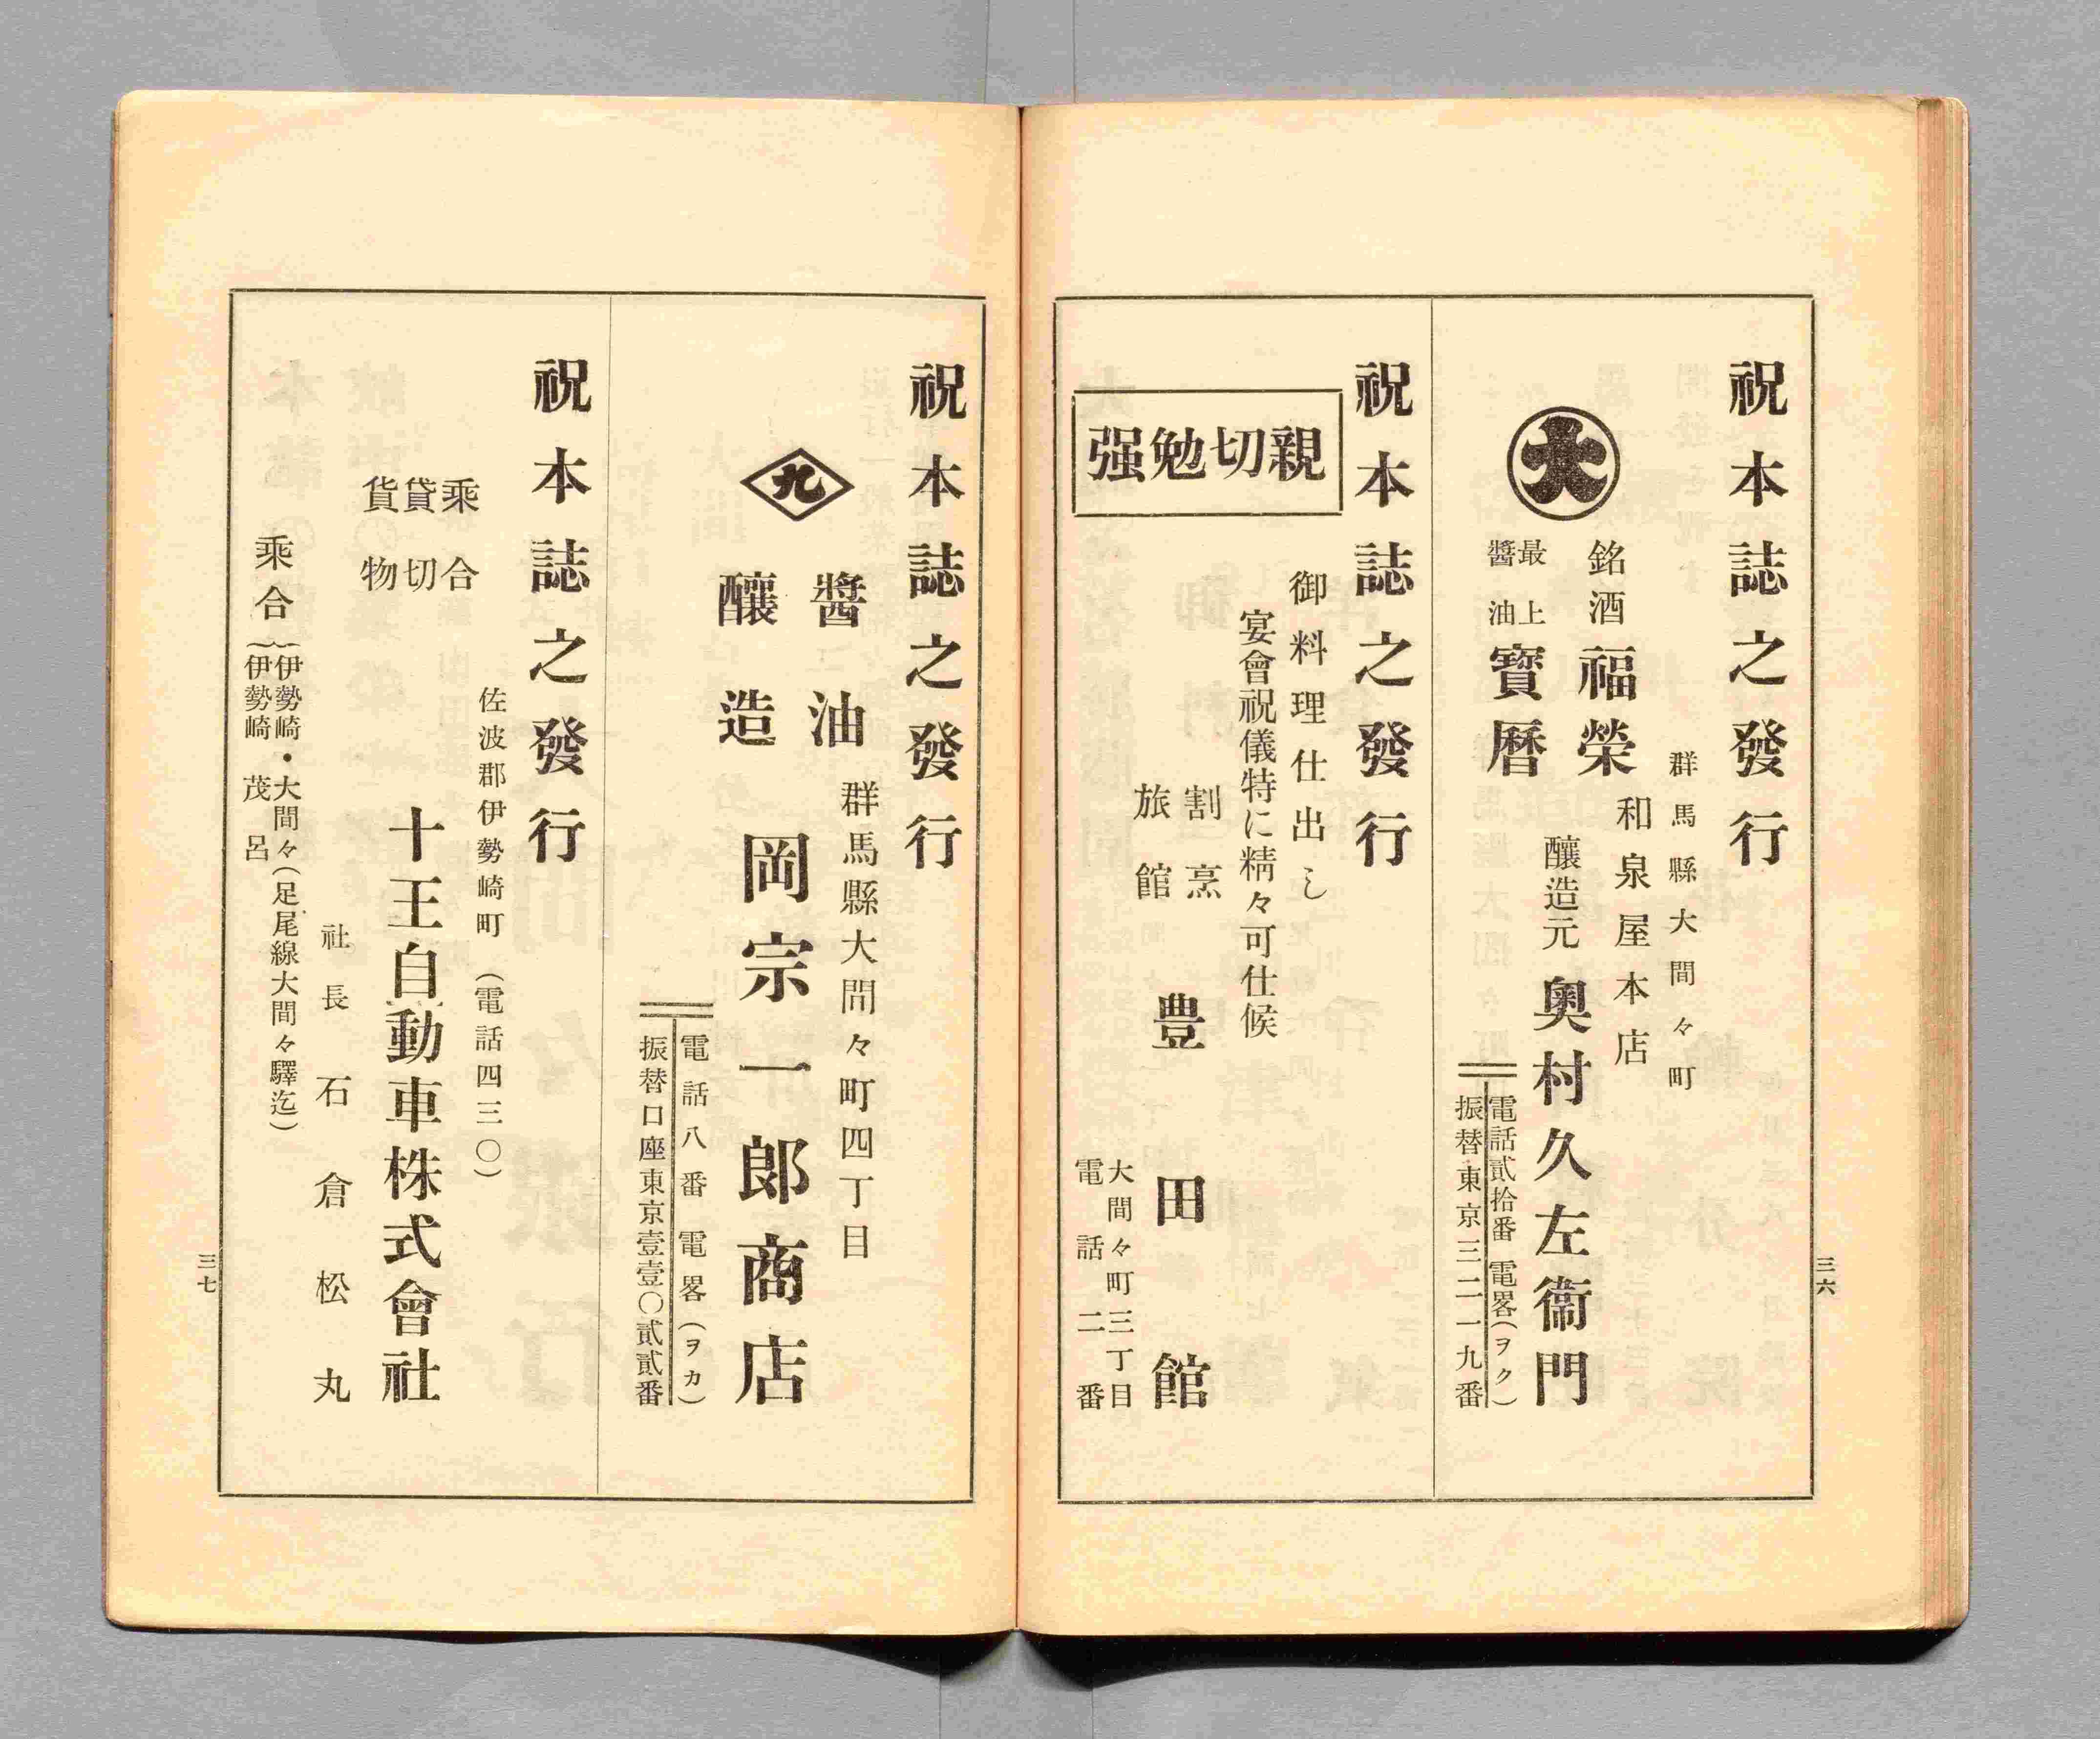 祝本誌之發行
群馬縣大間々町
和泉屋本店
大
銘酒 福榮
最上醬油 寶曆
釀造元 奧村久左衞門
電話貳拾番 電畧(ヲク)
振替東京三二一九番
三六
祝本誌之發行
親切勉强
御料理仕出し
宴會祝儀特に精々可仕候
割烹
旅館
豊田館
大間々町三丁目
電話二番
祝本誌之發行
九
醬油
釀造
群馬縣大間々町四丁目
岡宗一郎商店
電話八番 電畧(ヲカ)
振替口座東京壹壹〇貳貳番
祝本誌之發行
佐波郡伊勢崎町 (電話四三〇)
乘合
貸切
貨物
十王自動車株式會社
社長 石倉松丸
乘合
伊勢崎・大間々(足尾線大間々驛迄)
伊勢崎 茂呂
三七